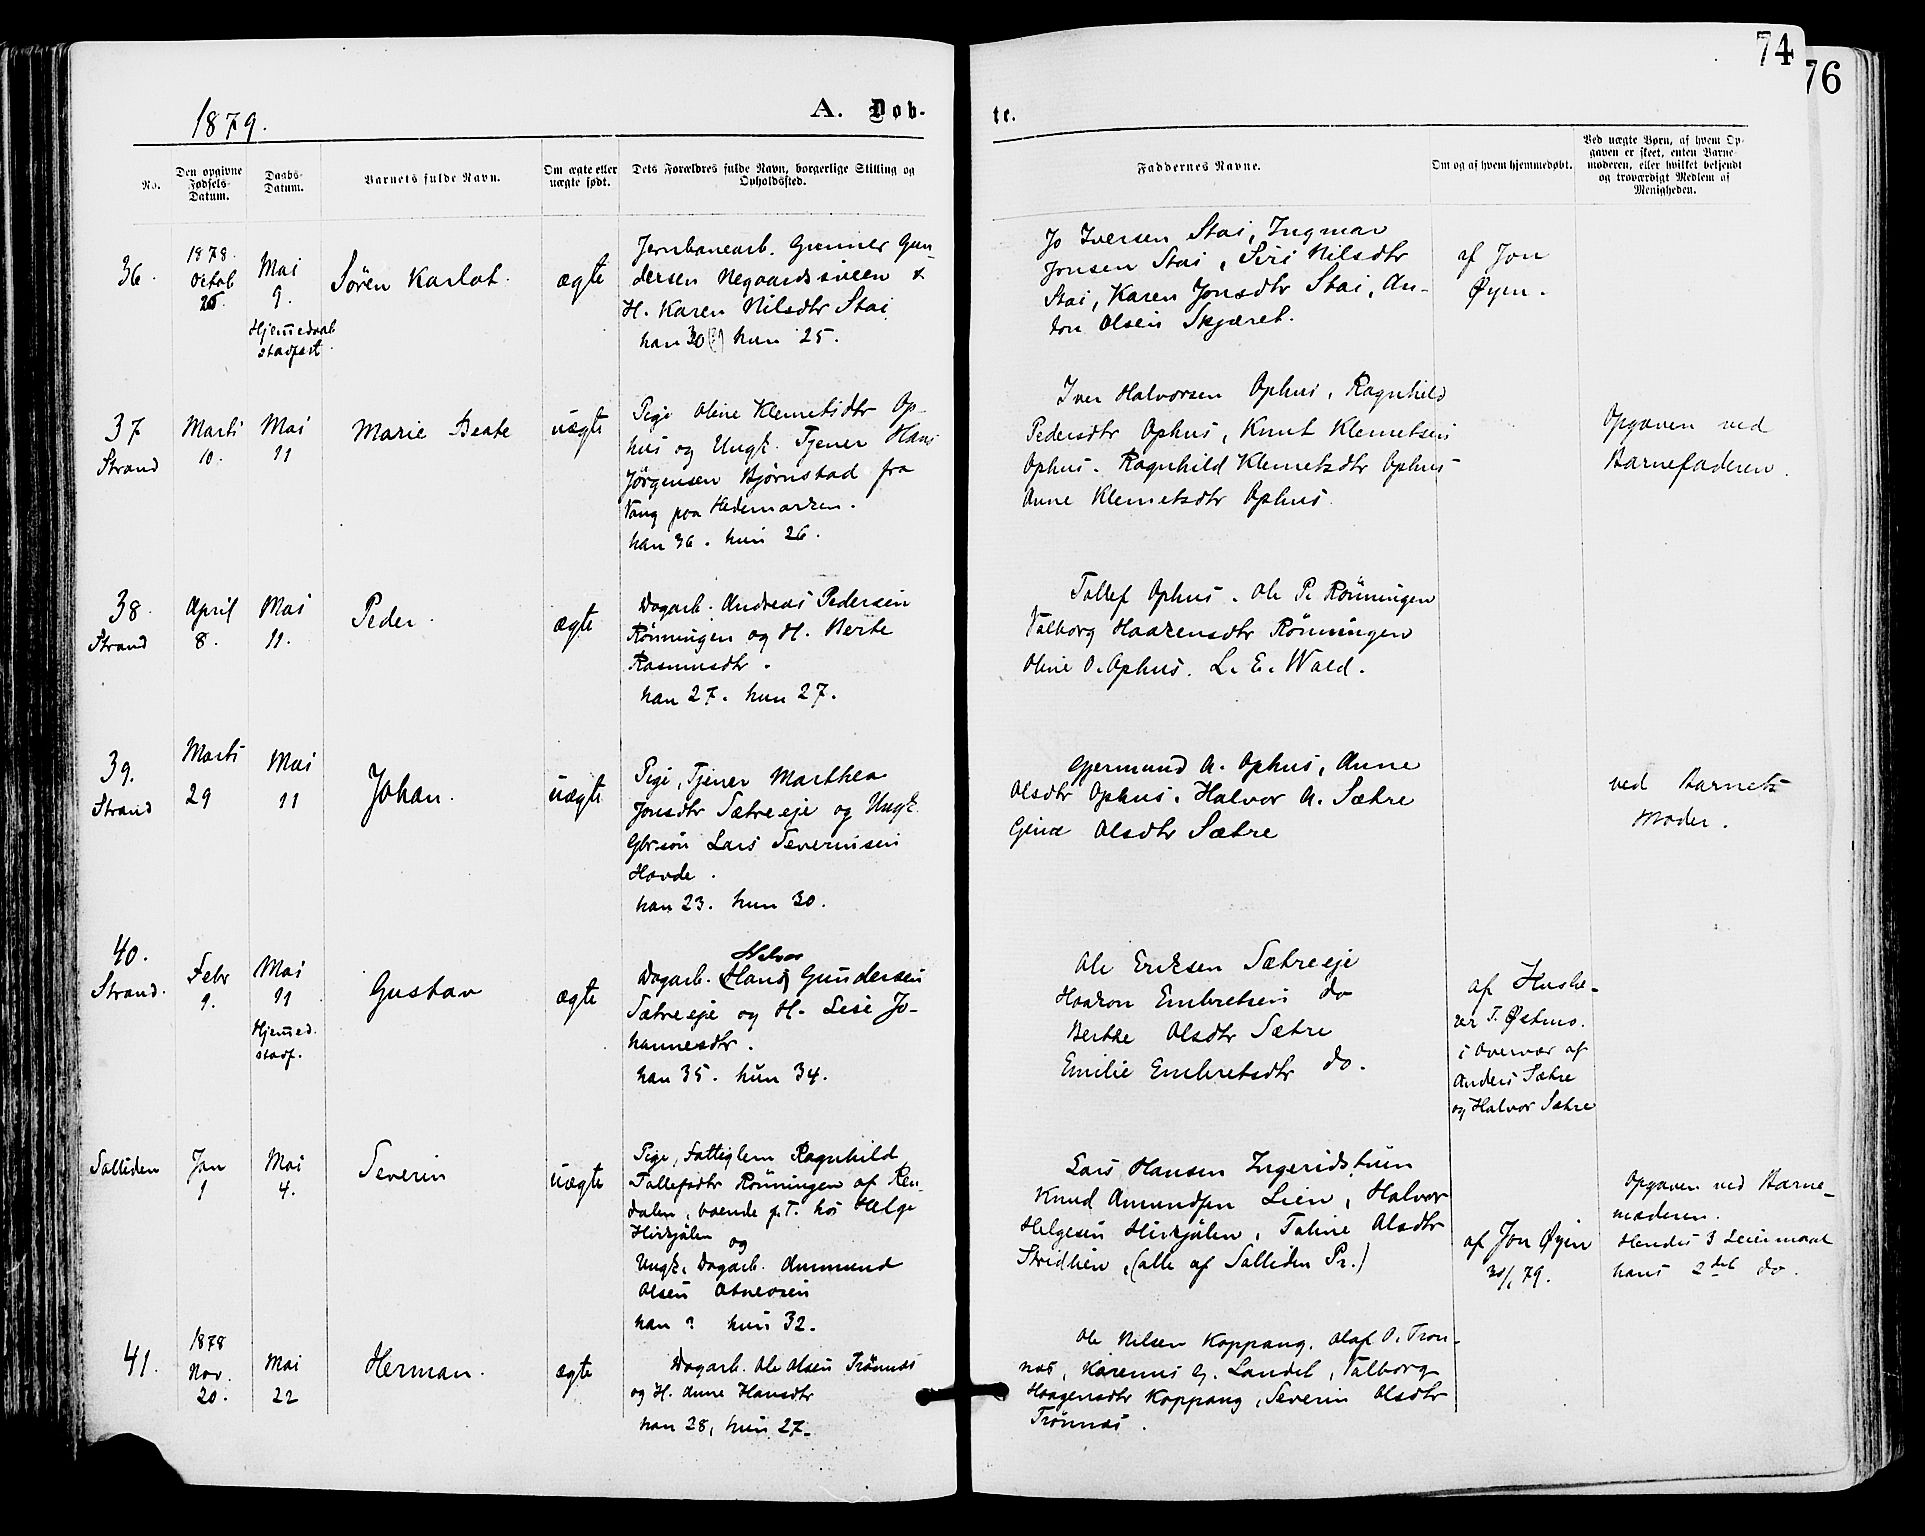 74
76
1879.
A. Døb-
te.
No.
Den opgivne Fødsels-Datum.
Daabs-Datum.
Barnets fulde Navn.
Om ægte eller uægte født.
Dets Forældres fulde Navn, borgerlige Stilling og Opholdssted.
Faddernes Navne.
Om og af hvem hjemmedøbt.
Ved uægte Børn, af hvem Opgaven er skeet, enten Barnemoderen, eller hvilket bekjendt og troværdigt Medlem af Menigheden.
36.
1878.
Octob
26.
Mai
9.
Hjemedaab
stadfæst.
Søren Karlot.
ægte
Jernbanearb. Gunner Gun-
dersen Negaardssveen &
H. Karen Nilsdtr Stai
han 30 (?) hun 25.
Jo Iversen Stai, Ingmar
Jonsen Stai, Siri Nilsdtr
Stai, Karen Jonsdtr Stai, An-
ton Olsen Skjæret.
af Jon
Øyen.
37
Strand
Marts
10.
Mai
11
Marie Beate
uægte
Pige Oline Klemetsdtr Op-
hus og Ungk. Tjener Hans
Jørgensen Bjørnstad fra
Vang paa Hedemarken.
han 36. hun 26.
Iver Halvorsen Ophus, Ragnhild
Pedersdtr Ophus, Knut Klemetsen
Ophus. Ragnhild Klemetsdtr Ophus
Anne Klemetsdtr Ophus
Opgaven ved
Barnefaderen.
38.
Strand
April
8.
Mai
11.
Peder.
ægte
Dagarb. Andreas Pedersen
Rönningen og H. Berte
Rasmusdtr.
han 27. hun 27.
Tollef Ophus. Ole P. Rönningen
Valborg Haakensdtr Rönningen
Oline O. Ophus. L. E. Wald.
39.
Strand
Marts
29
Mai
11
Johan.
uægte
Pige, Tjener Marthea
Jonsdtr Sætreeje og Ungk.
Gbrsön Lars Severinsen
Hovde.
han 23. hun 30.
Gjermund A. Ophus, Anne
Olsdtr Ophus. Halvor A. Sætre
Gina Olsdtr Sætre
ved Barnets
Moder.
40.
Strand.
Febr
9.
Mai
11
Hjemed.
stadf.
Gustav
ægte
Halvor
Dagarb. (Hans) Gundersen
Sætreeje og H. Lise Jo-
hannesdtr.
han 35. hun 34.
Ole Eriksen Sætreeje
Haakon Embretsen do
Berthe Olsdtr Sætre
Emilie Embretsdtr do.
af Kirke-
r T. Østmo.
i Overvær af
Anders Sætre
og Halvor Sætre
Solliden
Jan
1
Mai
4.
Severin
uægte
Pige, Fattiglem Ragnhild
Tollefsdtr Rönningen af Ren-
dalen, boende p. T. hos Helge
Hirkjølen og
Ungk. Dagarb. Ammund
Olsen Atneosen
han ? hun 32.
Lars Hansen Ingeridstuen
Knud Amundsen Lien, Halvor
Helgesen Hirkjølen, Taline Olsdtr
Stridlien, (alle af Solliden Pr.)
af Jon Øyen
30/1 79.
Opgaven ved Barne-
moderen.
Hendes 3 Leiermaal
hans 2det do.
41.
1878
Nov.
20.
Mai
22
Herman.
ægte
Dagarb. Ole Olsen Trönnæs
og H. Anne Hansdtr
han 28, hun 27.
Ole Nilsen Koppang. Olaf O. Trön-
næs, Karenus G. Landet, Valborg
Haagensdtr Koppang, Severin Olsdtr
Trönnæs.